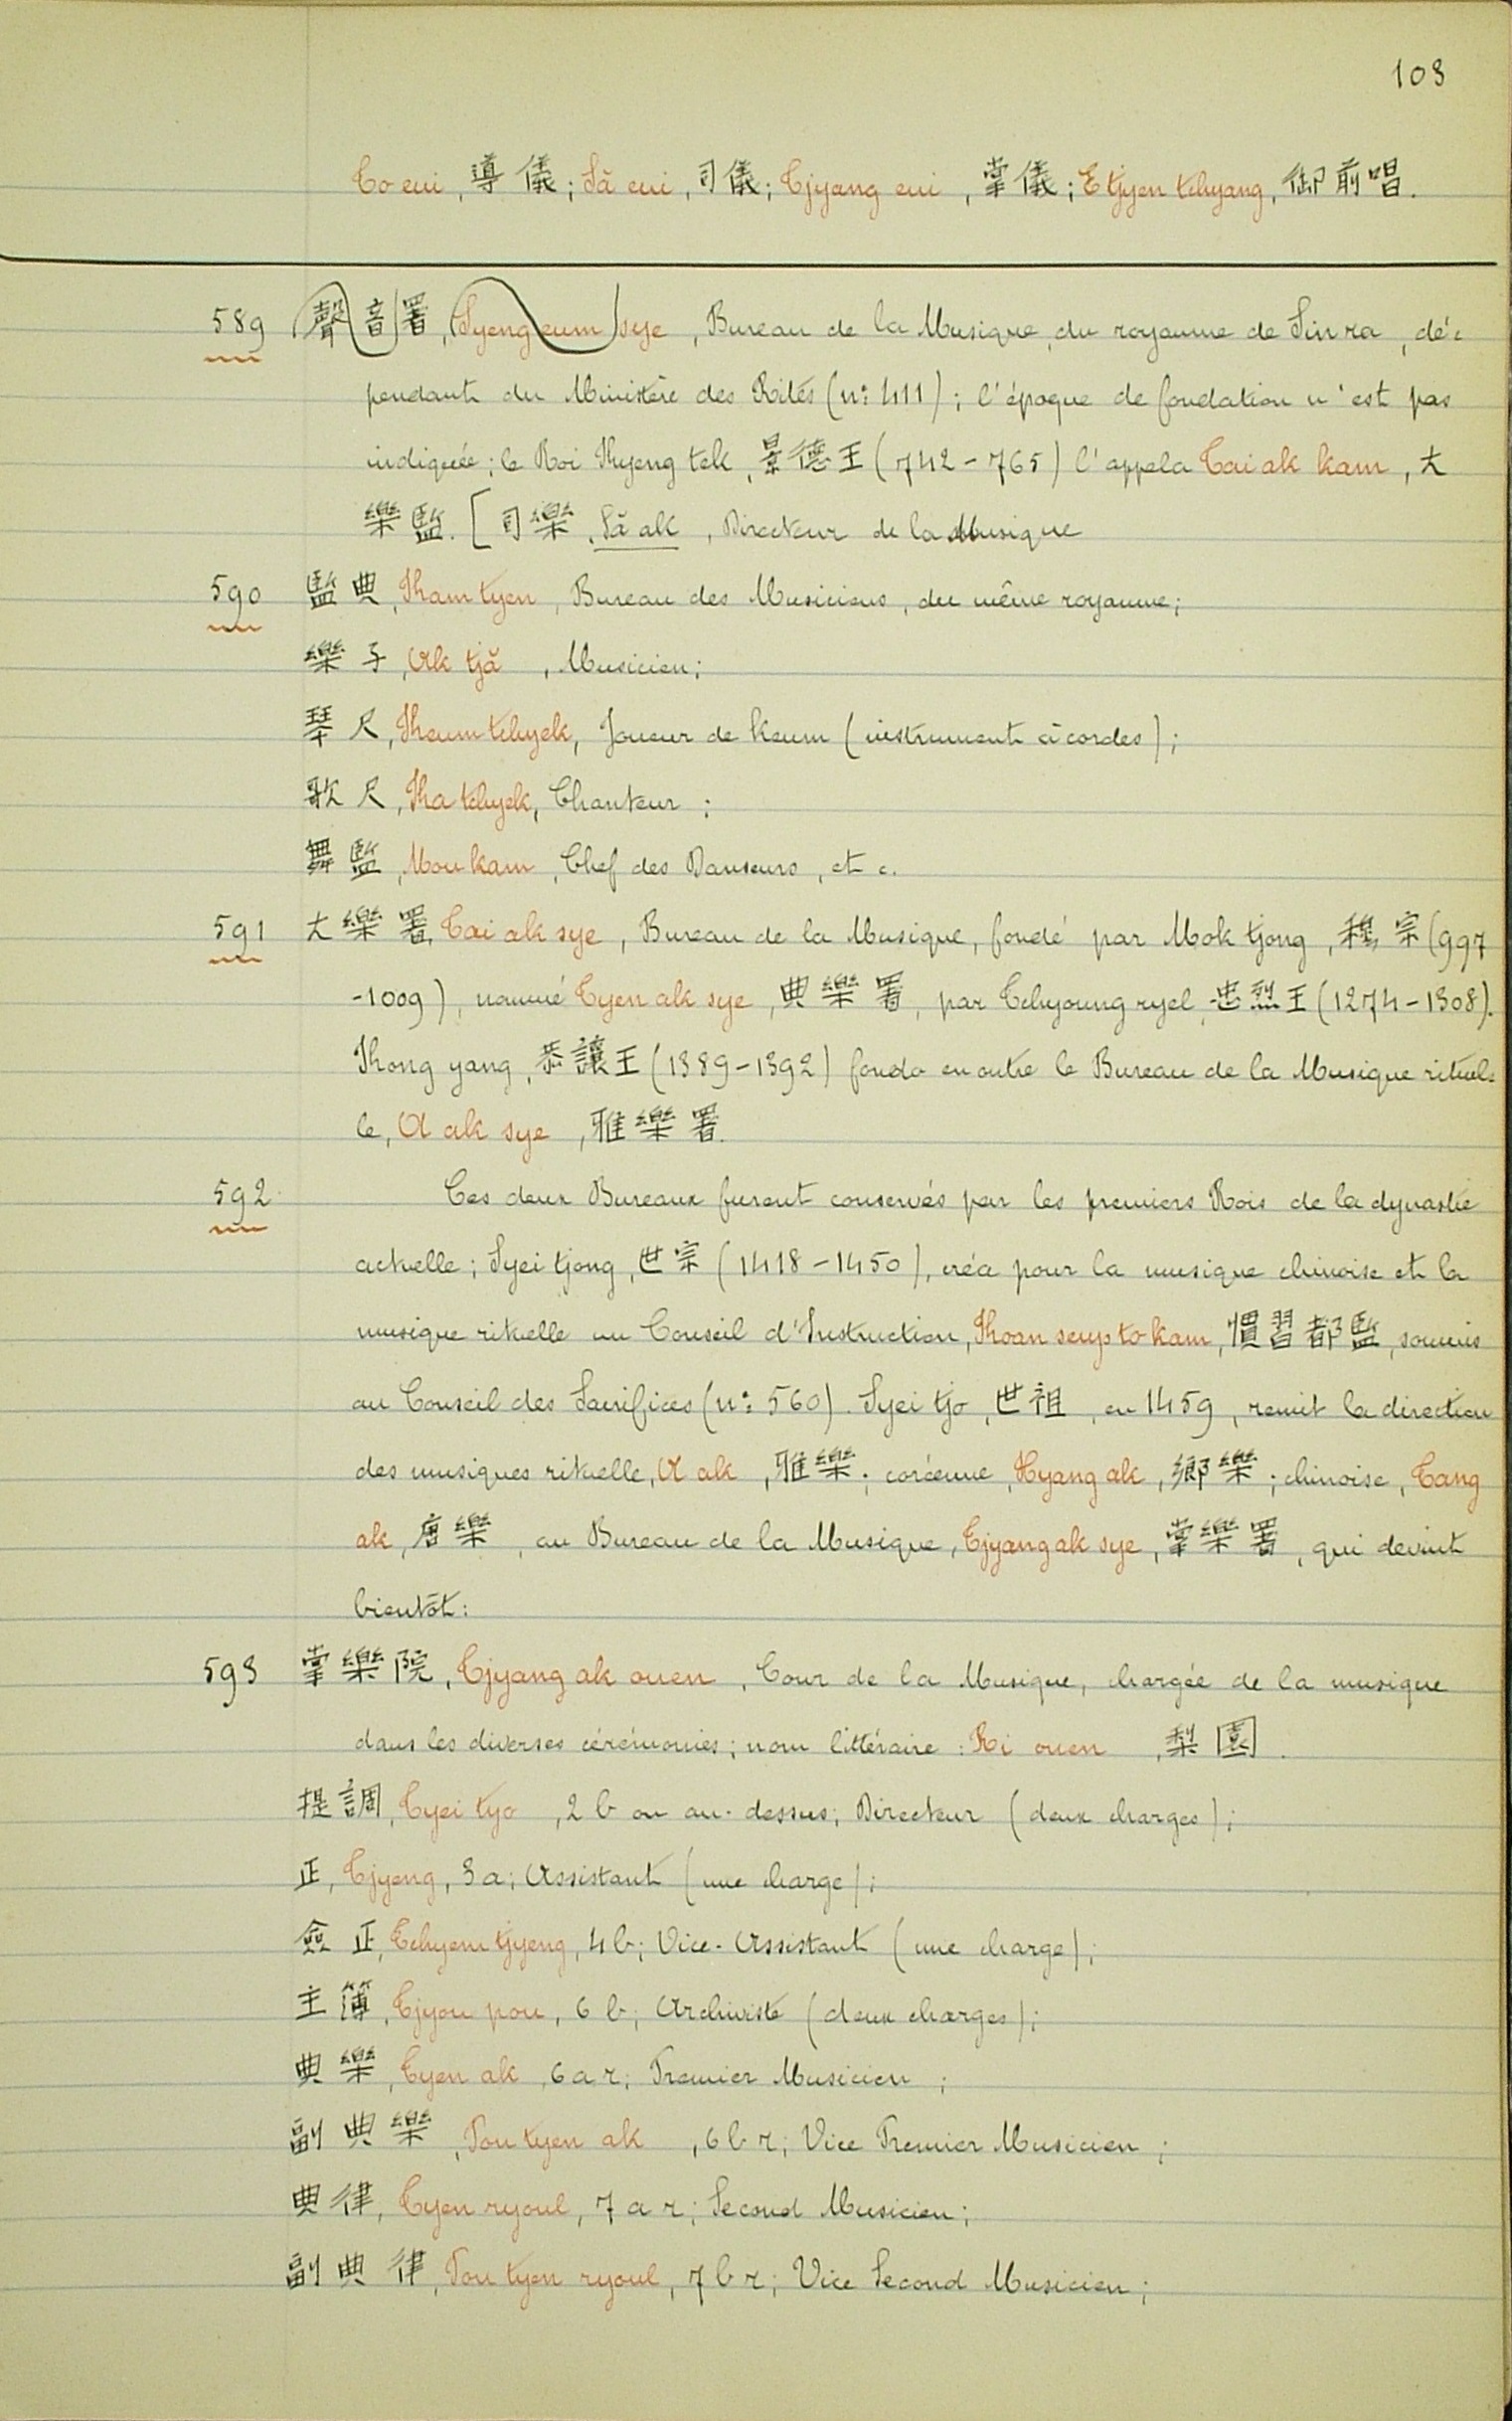 103
To eui, 導儀; Să eui, 司儀; Tjyang eui, 掌儀; E tjyen tchyang, 御前唱.
589 聲音署, Syeng eum sye, Bureau de la Musique, du royaume de Sin ra, dé-
pendant du Ministère des Rites (n: 411); l'époque de fondation n'est pas
indiquée; le Roi Kyeng tek, 景德王 (742-765) l'appela Tai ak kam, 大
樂監. [司樂, Să ak, Directeur de la Musique
590 監典, Kam tyen, Bureau des Musiciens, du même royaume;
樂子, Ak tjă, Musicien;
琴尺, Keum tchyek, Joueur de keum (instrument à cordes);
歌尺, Ka tchyek, Chanteur;
舞監, Mou kam, Chef des Danseurs, et c.
591 大樂署, Tai ak sye, Bureau de la Musique, fondé par Mok tjong, 穆宗 (997
-1009), nommé Tyen ak sye, 典樂署, par Tchyoung ryel, 忠烈王 (1274-1308).
Kong yang, 恭讓王 (1389-1392) fonda en outre le Bureau de la Musique rituel-
le, A ak sye, 雅樂署.
592 Ces deux Bureaux furent conservés par les premiers Rois de la dynastie
actuelle; Syei tjong, 世宗 (1418-1450), créa pour la musique chinoise et la
musique rituelle un Conseil d'Instruction, Koan seup to kam, 慣習都監, soumis
au Conseil des Sacrifices (n: 560). Syei tjo, 世祖, en 1459, remit la direction
des musiques rituelle, A ak, 雅樂; coréenne, Hyang ak, 鄉樂; chinoise, Tang
ak, 唐樂, au Bureau de la Musique, Tjyang ak sye, 掌樂署, qui devint
bientôt:
593 掌樂院, Tjyang ak ouen, Cour de la Musique, chargée de la musique
dans les diverses cérémonies; nom littéraire: Ri ouen, 梨園.
提調, Tyei tyo, 2 b ou au-dessus; Directeur (deux charges);
正, Tjyeng, 3 a; Assistant (une charge);
僉正, Tchyem tjyeng, 4 b; Vice-Assistant (une charge);
主簿, Tjyou pou, 6 b; Archiviste (deux charges);
典樂, Tyen ak, 6 a r; Premier Musicien;
副典樂, Pou tyen ak, 6 b r; Vice Premier Musicien;
典律, Tyen ryoul, 7 a r; Second Musicien;
副典律, Pou tyen ryoul, 7 b r; Vice Second Musicien;